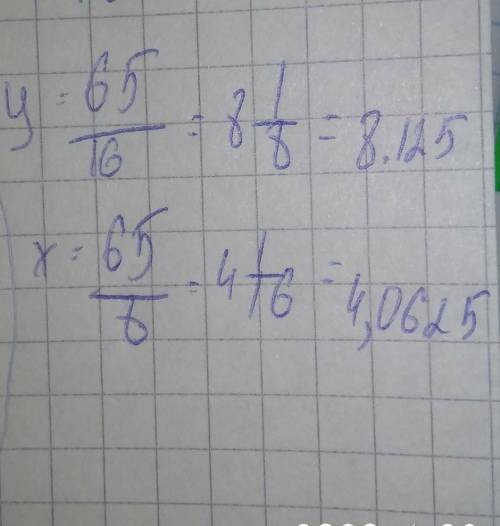 y = 65/16 = 8 1/8 = 8.125
x = 65/8 = 4 1/16 = 4,0625